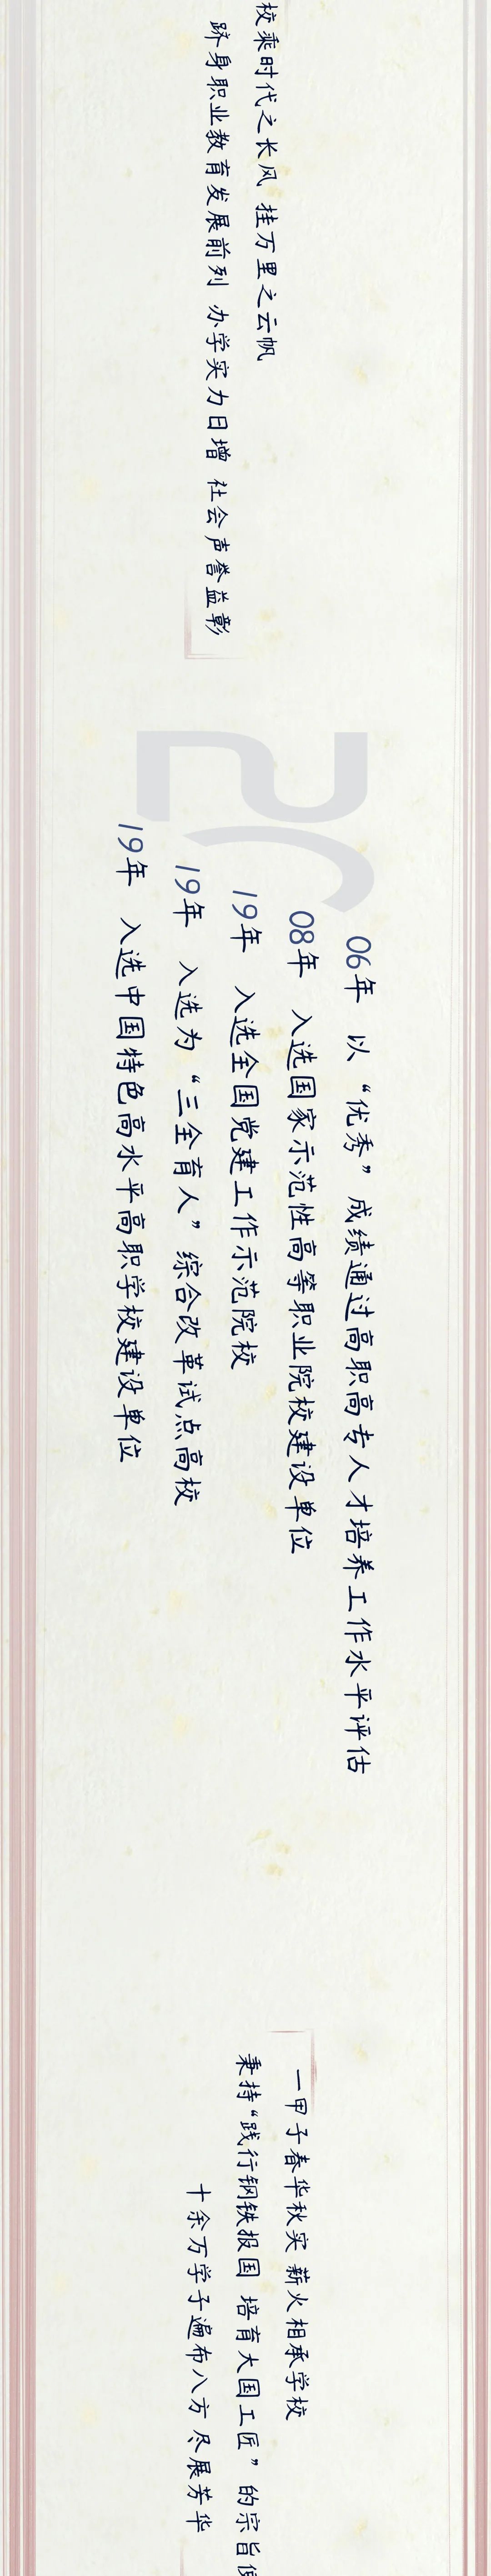 校乘时代之长风 挂万里之云帆
跻身职业教育发展前列 办学实力日增 社会声誉益彰
06年 以“优秀”成绩通过高职高专人才培养工作水平评估
08年 入选国家示范性高等职业院校建设单位
19年 入选全国党建工作示范院校
19年 入选为“三全育人”综合改革试点高校
19年 入选中国特色高水平高职学校建设单位
一甲子春华秋实 薪火相承学校
秉持“践行钢铁报国 培育大国工匠”的宗旨
十余万学子遍布八方 尽展芳华